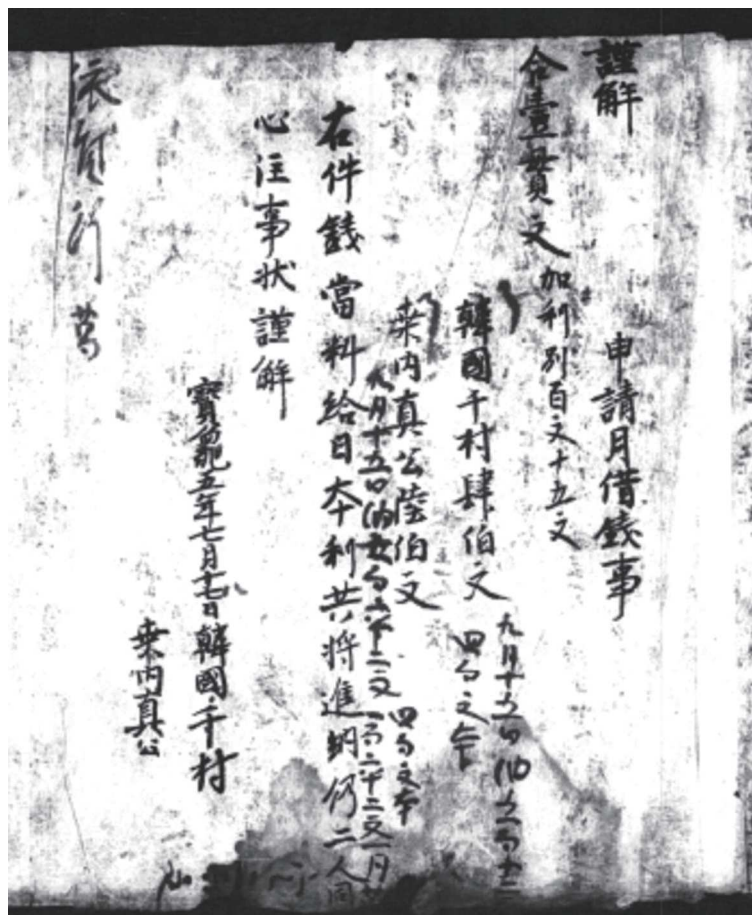 謹解 申請月借錢事
合壹貫文 加利別百文十五文
韓國千村肆伯文
九月十五日納五百十二
四百文本
桒内真公陸伯文
九月十五日納五百六十二文 四百文本
右件錢當料給日本利共將進納仍二人同
心注事状謹解
寳龜五年七月十七日韓國千村
桒内真公
依員行 葛